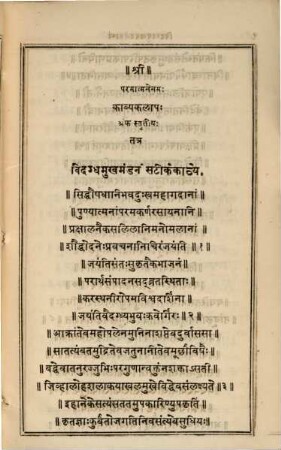 ॥ श्री ॥
परमात्मनेनमः
काव्यकलापः
अंक स्तृतीयः
तत्र
विदग्धमुखमंडनं सटीकंकाव्यं.
॥ सिद्धौषधानिभवदुःखमहागदानां ॥
॥ पुण्यात्मनांपरमकर्णरसायनानि ॥
॥ प्रक्षालनैकसलिलानिमनोमलानां ॥
॥ शौद्धोदनेःप्रवचनानिचिरंजयंति ॥ १ ॥
॥ जयंतिसंतःसुकृतैकभाजनं ॥
॥ परार्थसंपादनसद्व्रतस्थिताः ॥
॥ करस्थनीरोपमविश्वदर्शिनो ॥
॥ जयंतिवैदग्ध्यभुवःकवेर्गिरः ॥ २ ॥
॥ आक्रांतेवमहोपलेनमुनिनाशप्तेवदुर्वाससा ॥
॥ सातत्यंबतमुद्रितेवजतुनानीतेवमूर्छांविषैः ॥
॥ बद्धेवातनुरज्जुभिःपरगुणान्वक्तुंनशक्ताऽसती ॥
॥ जिव्हालोहशलाकयाखलमुखेविद्धेवसंलक्ष्यते ॥ ३ ॥
॥ इहानेकेसत्यंसततमुपकारिण्युपकृतिं ॥
॥ कृतज्ञाःकुर्वंतोजगतिनिवसंत्येवसुधियः ॥